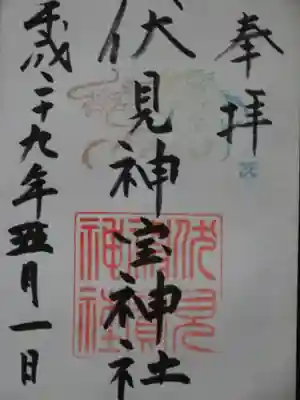 奉拝
伏見神宝神社
平成二十九年五月一日
伏見神寳神社